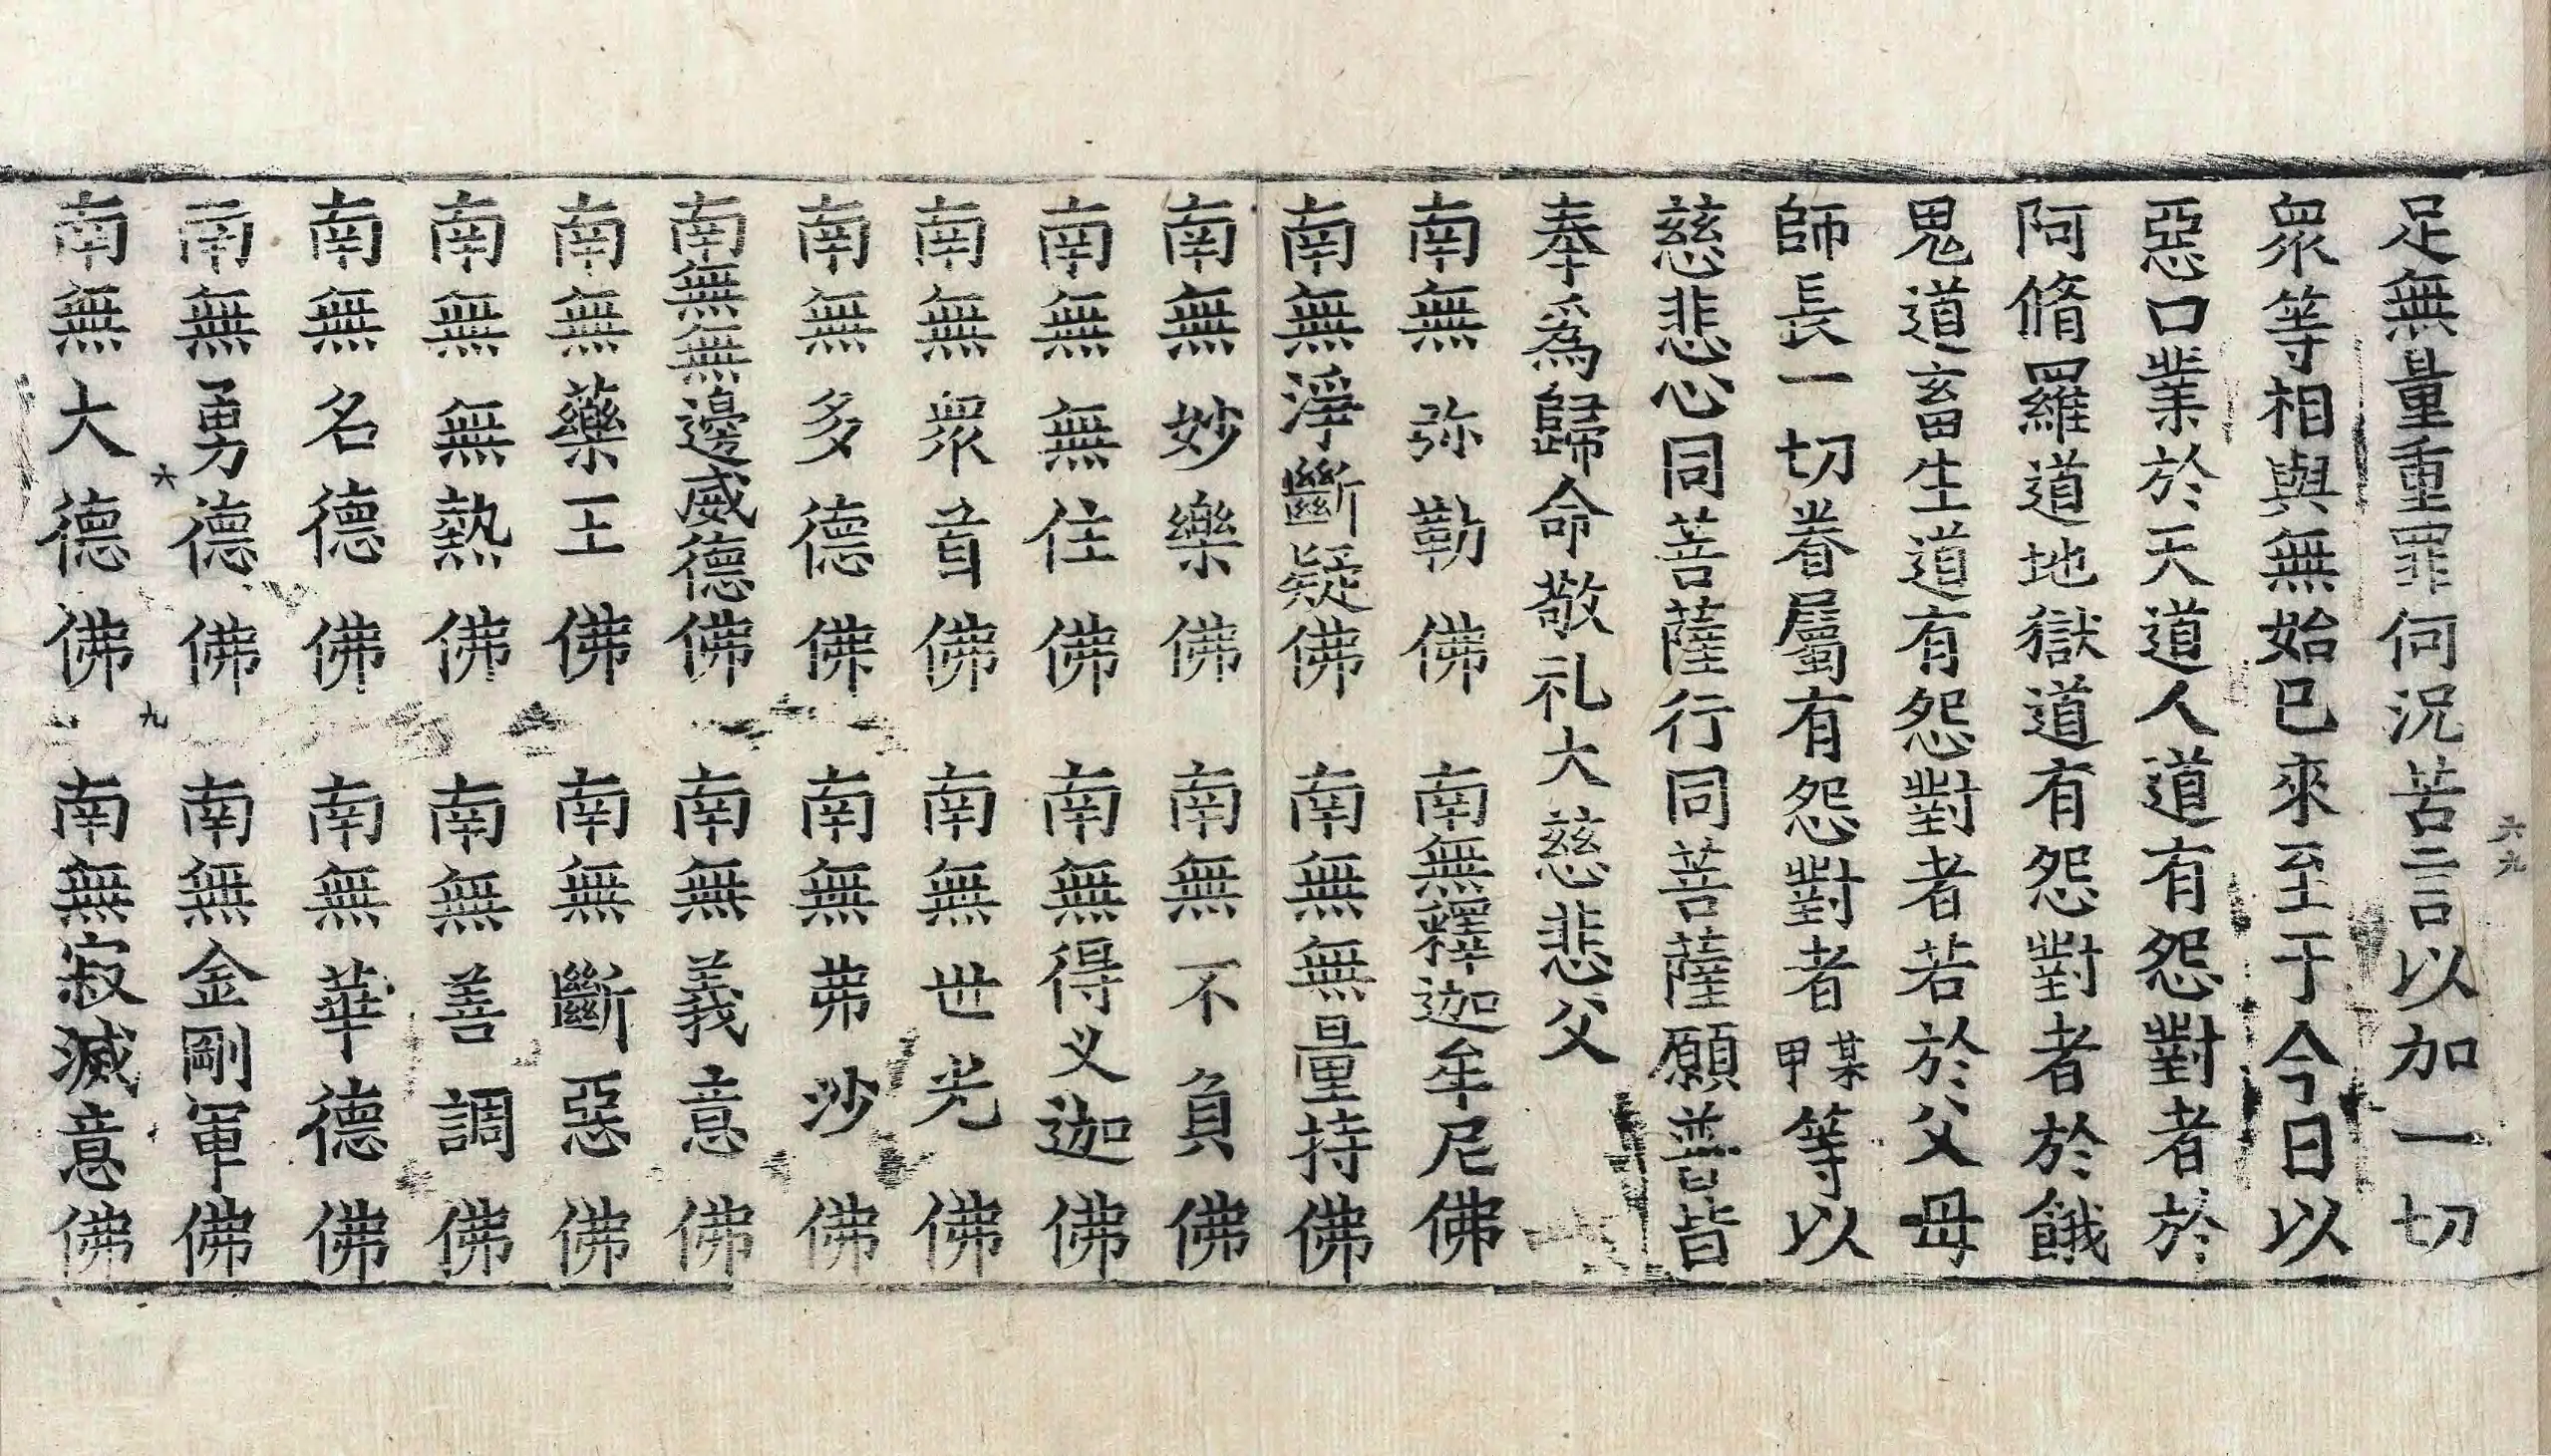 足無量重罪何況苦言以加一切
眾等相與無始已來至于今日以
惡口業於天道人道有怨對者於
阿脩羅道地獄道有怨對者於餓
鬼道畜生道有怨對者若於父母
師長一切眷屬有怨對者某甲等以
慈悲心同菩薩行同菩薩願普皆
奉爲歸命敬礼大慈悲父
南無弥勒佛 南無釋迦牟尼佛
南無淨斷疑佛 南無無量持佛
南無妙樂佛 南無不負佛
南無無住佛 南無得叉迦佛
南無眾首佛 南無世光佛
南無多德佛 南無弗沙佛
南無無邊威德佛 南無義意佛
南無藥王佛 南無斷惡佛
南無無熱佛 南無善調佛
南無名德佛 南無華德佛
南無勇德佛 南無金剛軍佛
南無大德佛 南無寂滅意佛
六九
六 九